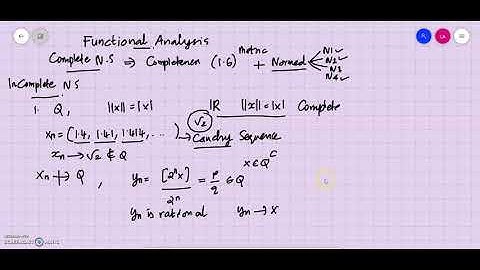 Functional Analysis
Complete N.S ⇒ Completenen (1.6) Metric + Normed N1✓ N2✓ N3 N4✓
InComplete N S
1. Q, ||x|| = |x| IR ||x|| = |x| Complete
xn = (1.4, 1.41, 1.414, ...) → Cauchy Sequence √2
xn → √2 ∉ Q x ∈ Q^c
xn ↛ Q, yn = [2^n x] / 2^n = p/q ∈ Q
yn is rational yn → x
SCREENCAST-O-MATIC